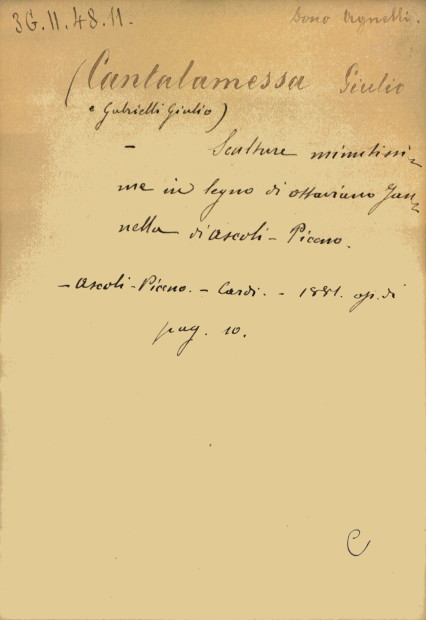 3G.11.48.11.
Dono Agnelli.
(Cantalamessa Giulio
e Gabrielli Giulio)
– Sculture minutissi-
me in legno di Ottaviano Jan-
nella di Ascoli-Piceno.
– Ascoli-Piceno. – Cardi. – 1881. op. di
pag. 10.
C